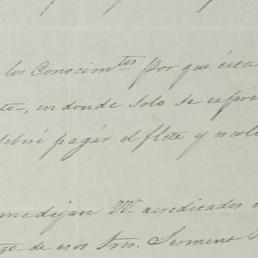 los Conocim.tos por que ésta
to, en donde solo se espre
deberé pagár el flete y
me dijan VV. acreditados
go de esos tres. Sermens